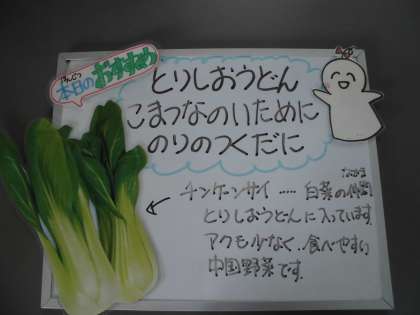 本日のおすすめ
とりしおうどん
こまつなのいために
のりのつくだに
チンゲンサイ ….. 白菜の仲間
なかま
とりしおうどんに入っています。
アクも少なく、食べやすい
中国野菜です。